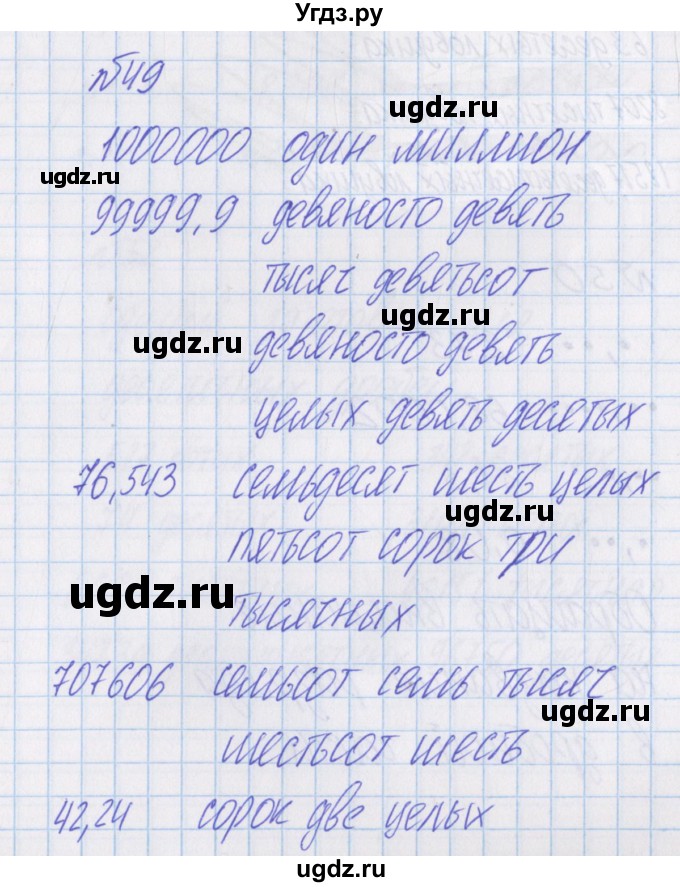 Угдз.ру
№49
ugdz.ru
1000000 один миллион
ugdz.ru
99999,9 девяносто девять
тысяч девятьсот
ugdz.ru
девяносто девять
целых девять десятых
76,543 семьдесят шесть целых
ugdz.ru
пятьсот сорок три
ugdz.ru
тысячных
707606 семьсот семь тысяч
ugdz.ru
шестьсот шесть
42,24 сорок две целых
ugdz.ru